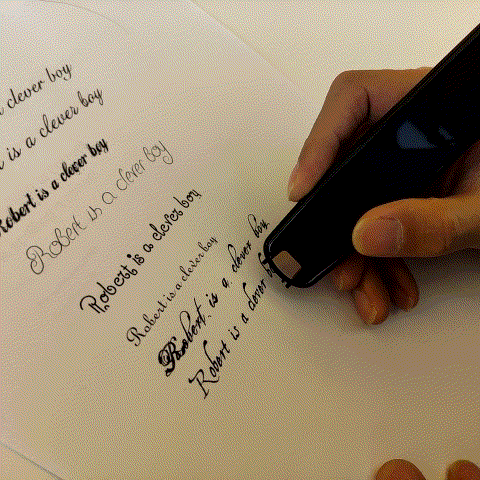 clever boy
is a clever boy
Robert is a clever boy
Robert is a clever boy
Robert is a clever boy
Robert is a clever boy
Robert is a clever boy
Robert is a clever